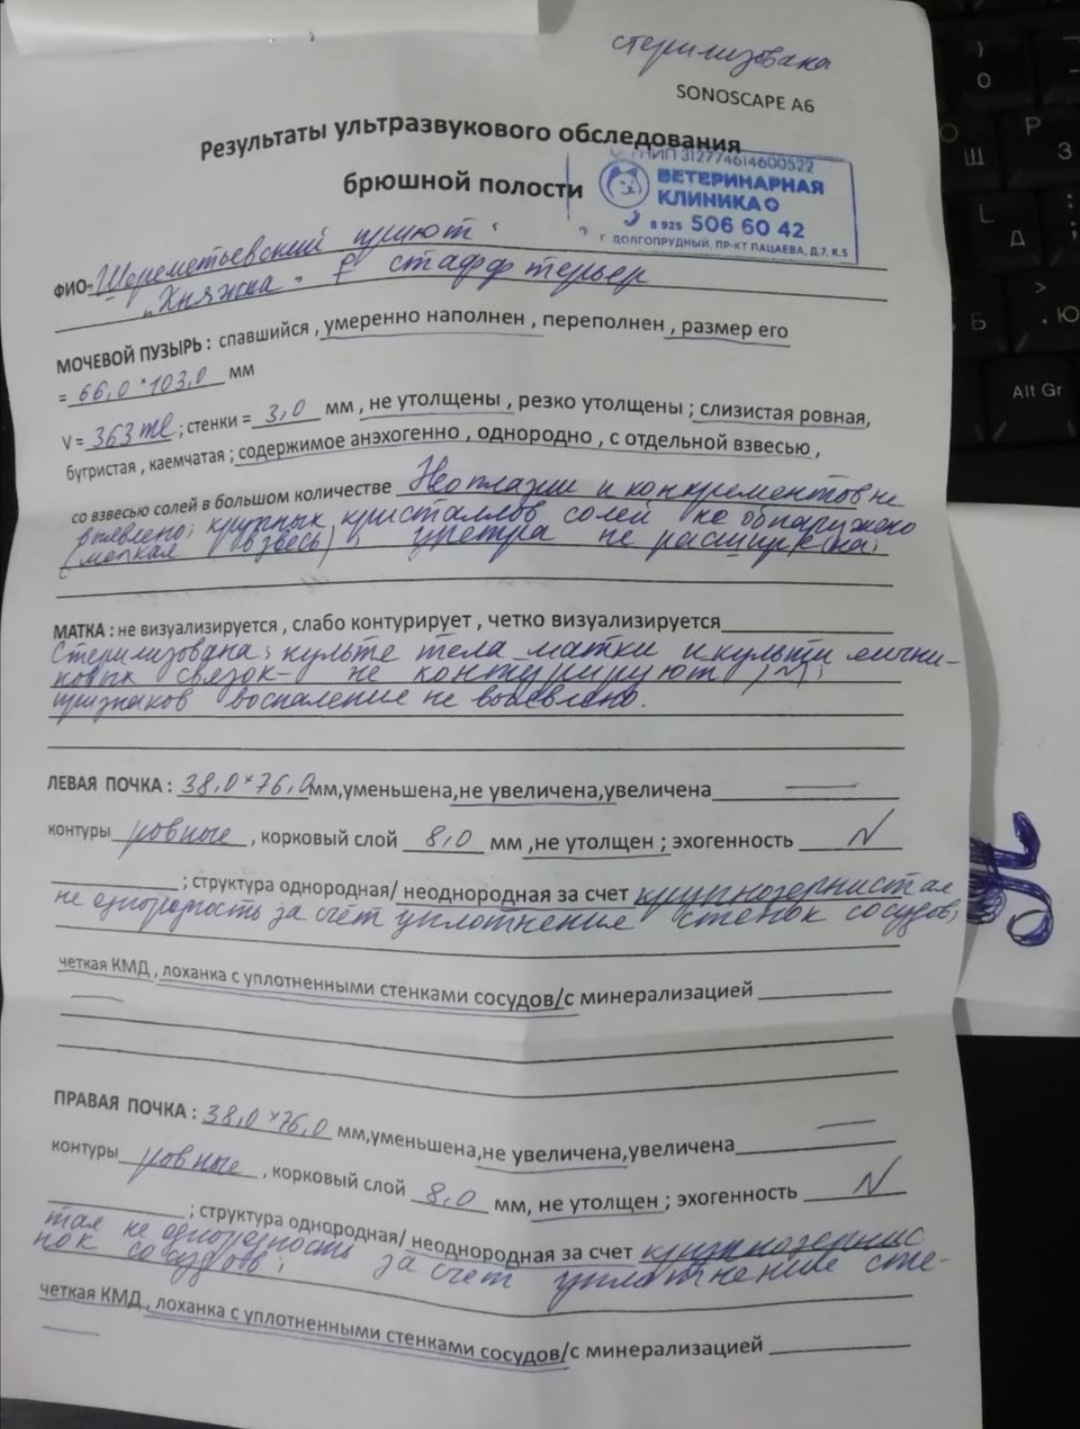 стерилизована
SONOSCAPE A6
Результаты ультразвукового обследования
брюшной полости
ОГРНИП 312774614600522
ВЕТЕРИНАРНАЯ
КЛИНИКА
8 925 506 60 42
Г ДОЛГОПРУДНЫЙ, ПР-КТ ПАЦАЕВА, Д.7, К.5
ФИО- Шереметьевский приют
"Княжна" ♀ стафф терьер
МОЧЕВОЙ ПУЗЫРЬ : спавшийся , умеренно наполнен , переполнен , размер его
= 66,0*103,0 мм
V = 363 ml ; стенки = 3,0 мм , не утолщены , резко утолщены ; слизистая ровная,
бугристая , каемчатая ; содержимое анэхогенно , однородно , с отдельной взвесью ,
со взвесью солей в большом количестве Неоплазии и конкрементов не
выявлено; крупных кристаллов солей не обнаружено
(мелкая взвесь); уретра не расширена;
МАТКА : не визуализируется , слабо контурирует , четко визуализируется
Стерилизована; культе тела матки и культи яични-
ковых связок- не контурируют (N);
признаков воспаление не выявлено.
ЛЕВАЯ ПОЧКА : 38,0*76,0 мм,уменьшена,не увеличена,увеличена —
контуры ровные , корковый слой 8,0 мм ,не утолщен ; эхогенность N
; структура однородная/ неоднородная за счет крупнозернистая
не однородность за счёт уплотнение стенок сосудов;
четкая КМД , лоханка с уплотненными стенками сосудов/с минерализацией
—
ПРАВАЯ ПОЧКА : 38,0*76,0 мм,уменьшена,не увеличена,увеличена —
контуры ровные , корковый слой 8,0 мм, не утолщен ; эхогенность N
; структура однородная/ неоднородная за счет крупнозернис
тая не однородность за счет уплотнение сте-
нок сосудов;
четкая КМД , лоханка с уплотненными стенками сосудов/с минерализацией
—
) 0
Р З
Щ
L Д
> . Ю
Б
Alt Gr